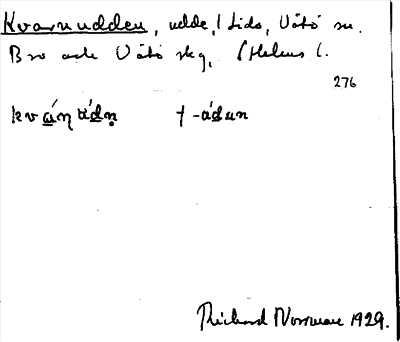 Kvarnudden, udde, Lido, Vätö sn.
Bro och Vätö skg, Sthlms l.
276
kváŋ ádn̥ † -ádun
Rickard Norrman 1929.